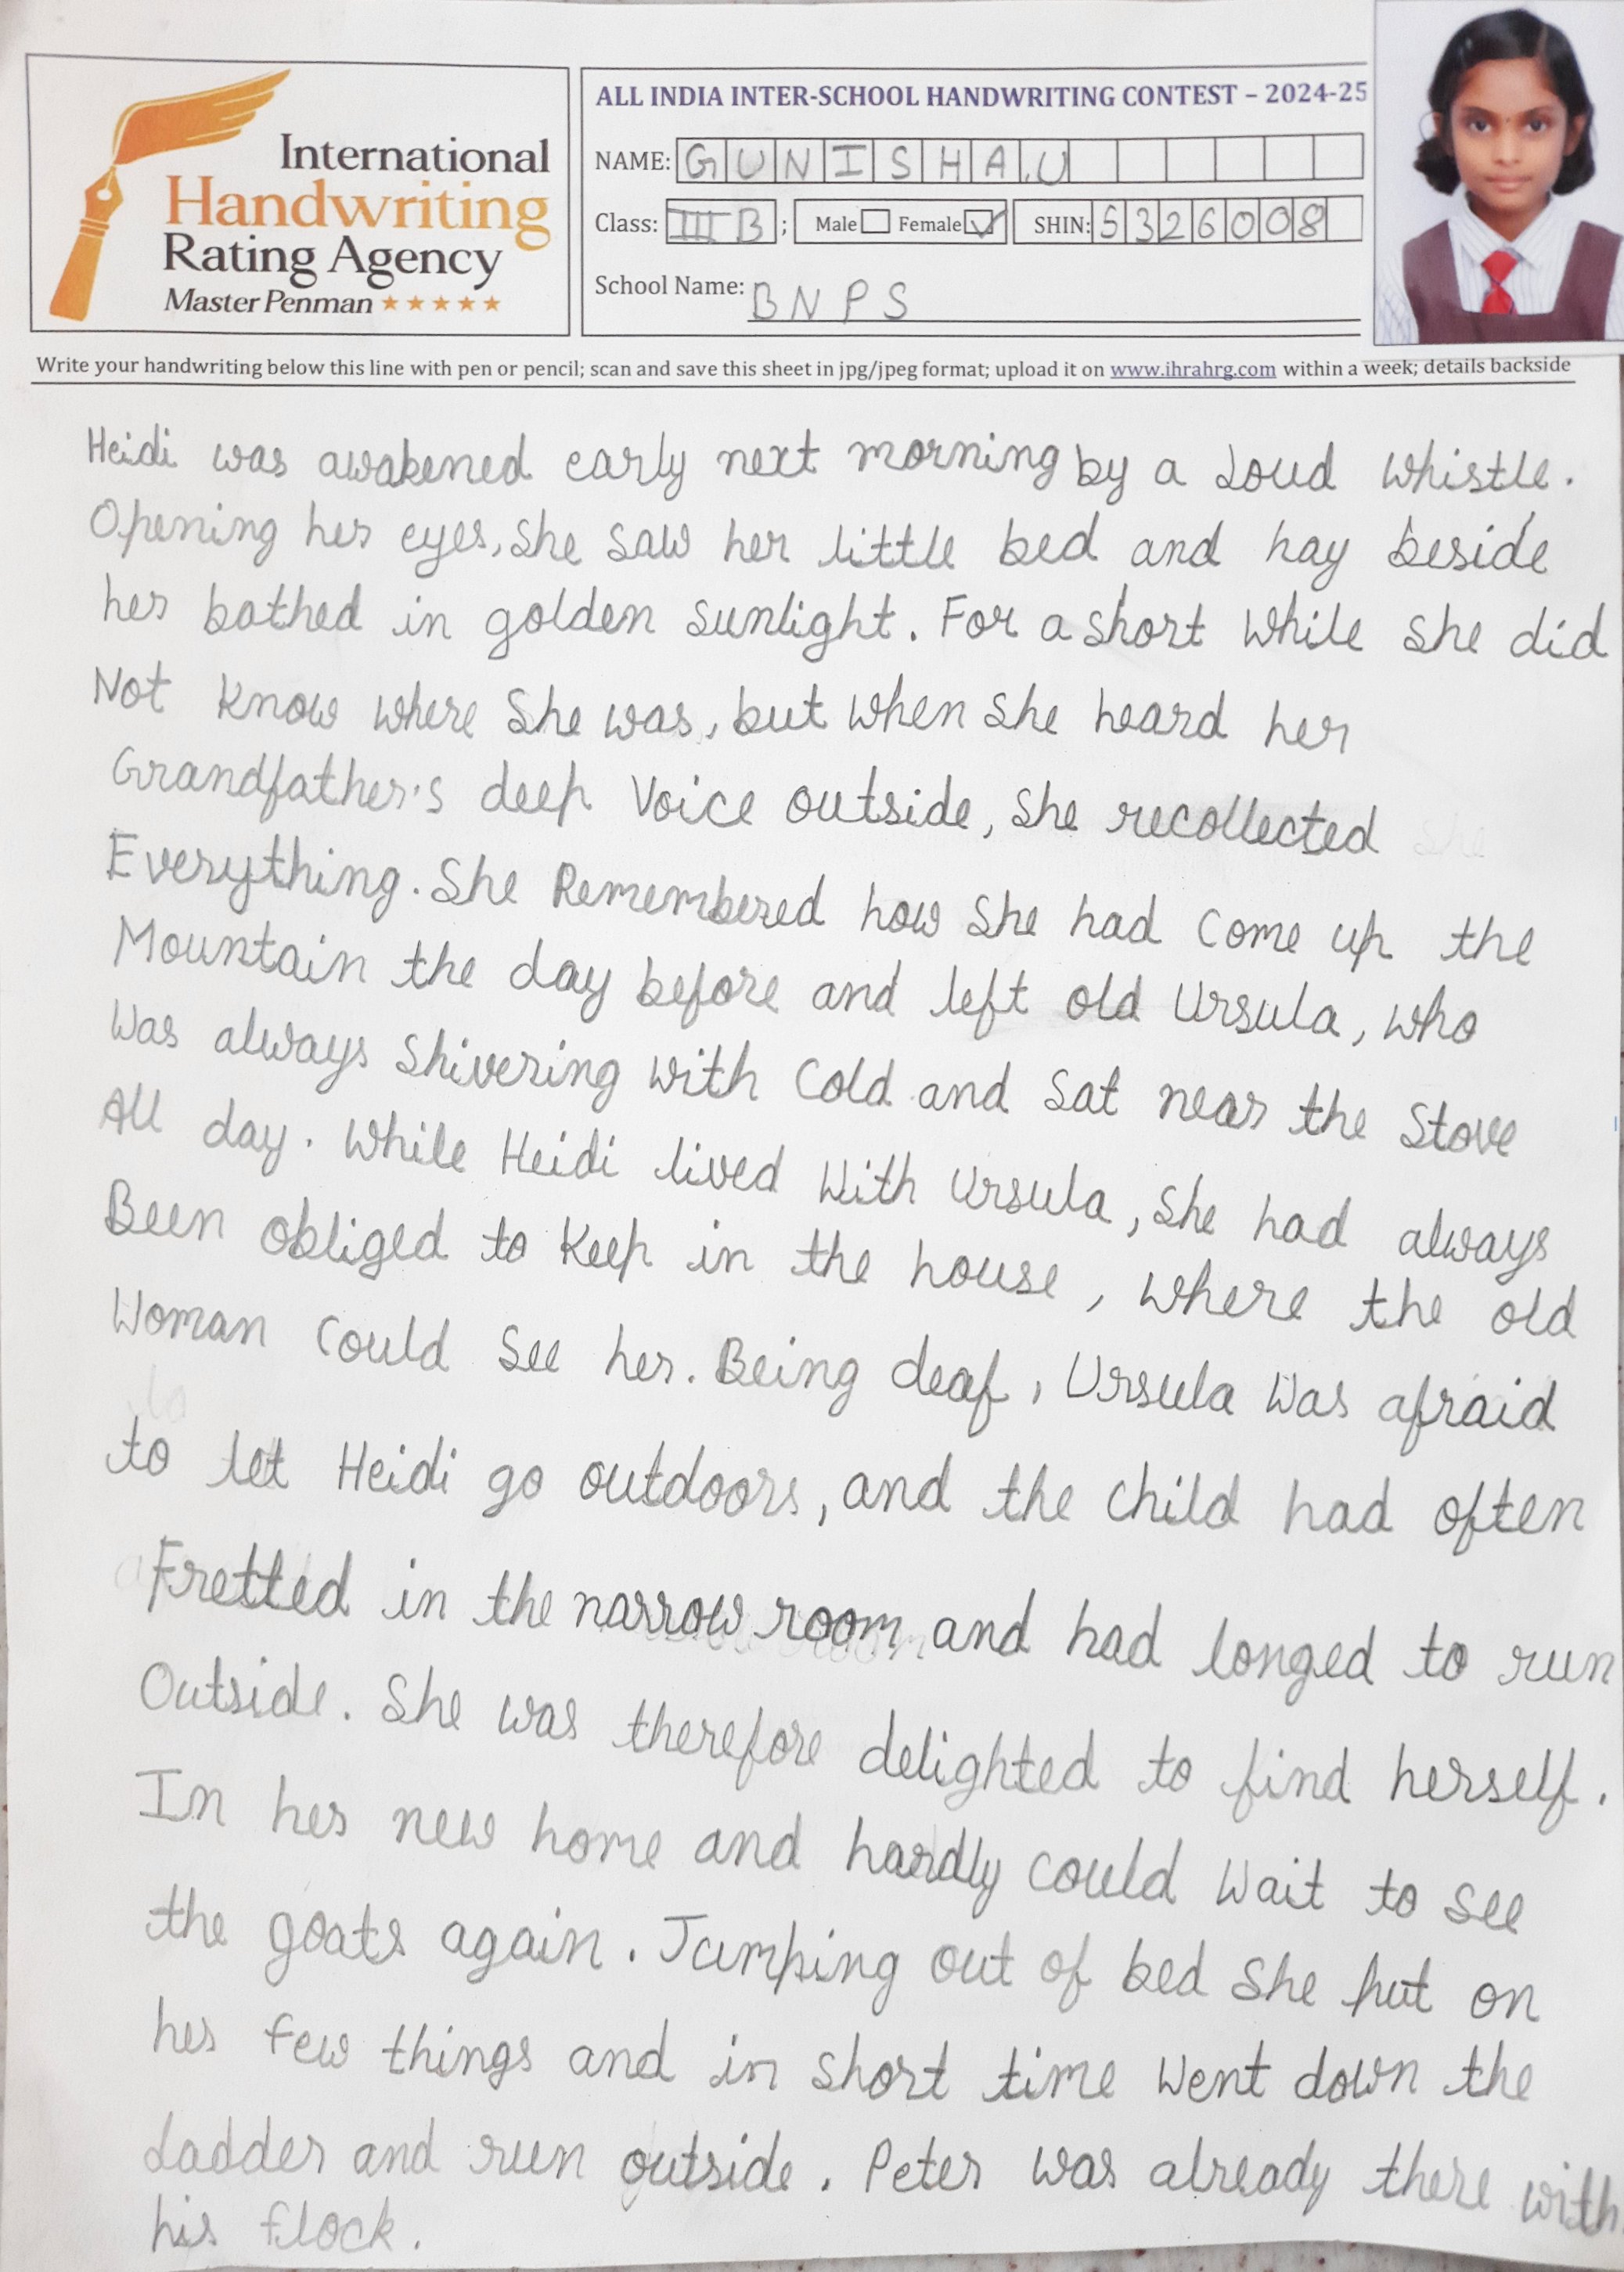 International
Handwriting
Rating Agency
Master Penman
ALL INDIA INTER-SCHOOL HANDWRITING CONTEST – 2024-25
NAME: GUNISHA.U
Class: III B ; Male Female SHIN: 5326008
School Name: BNPS
Write your handwriting below this line with pen or pencil; scan and save this sheet in jpg/jpeg format; upload it on www.ihrahrg.com within a week; details backside
Heidi was awakened early next morning by a Loud whistle.
Opening her eyes, She saw her little bed and hay beside
her bathed in golden sunlight. For a short while she did
Not know where She was, but when she heard her
Grandfather's deep Voice outside, she recollected she
Everything. She Remembered how She had come up the
Mountain the day before and left old Ursula, who
Was always Shivering with Cold and Sat near the Stove
All day. While Heidi lived With Ursula, She had always
Been obliged to Keep in the house, where the old
Woman could See her. Being deaf, Ursula Was afraid
to let Heidi go outdoors, and the child had often
Fretted in the narrow room and had longed to run
Outside. She was therefore delighted to find herself.
In her new home and hardly could Wait to see
the goats again. Jumping out of bed She put on
her few things and in short time Went down the
Ladder and run outside. Peter was already there with
his flock.